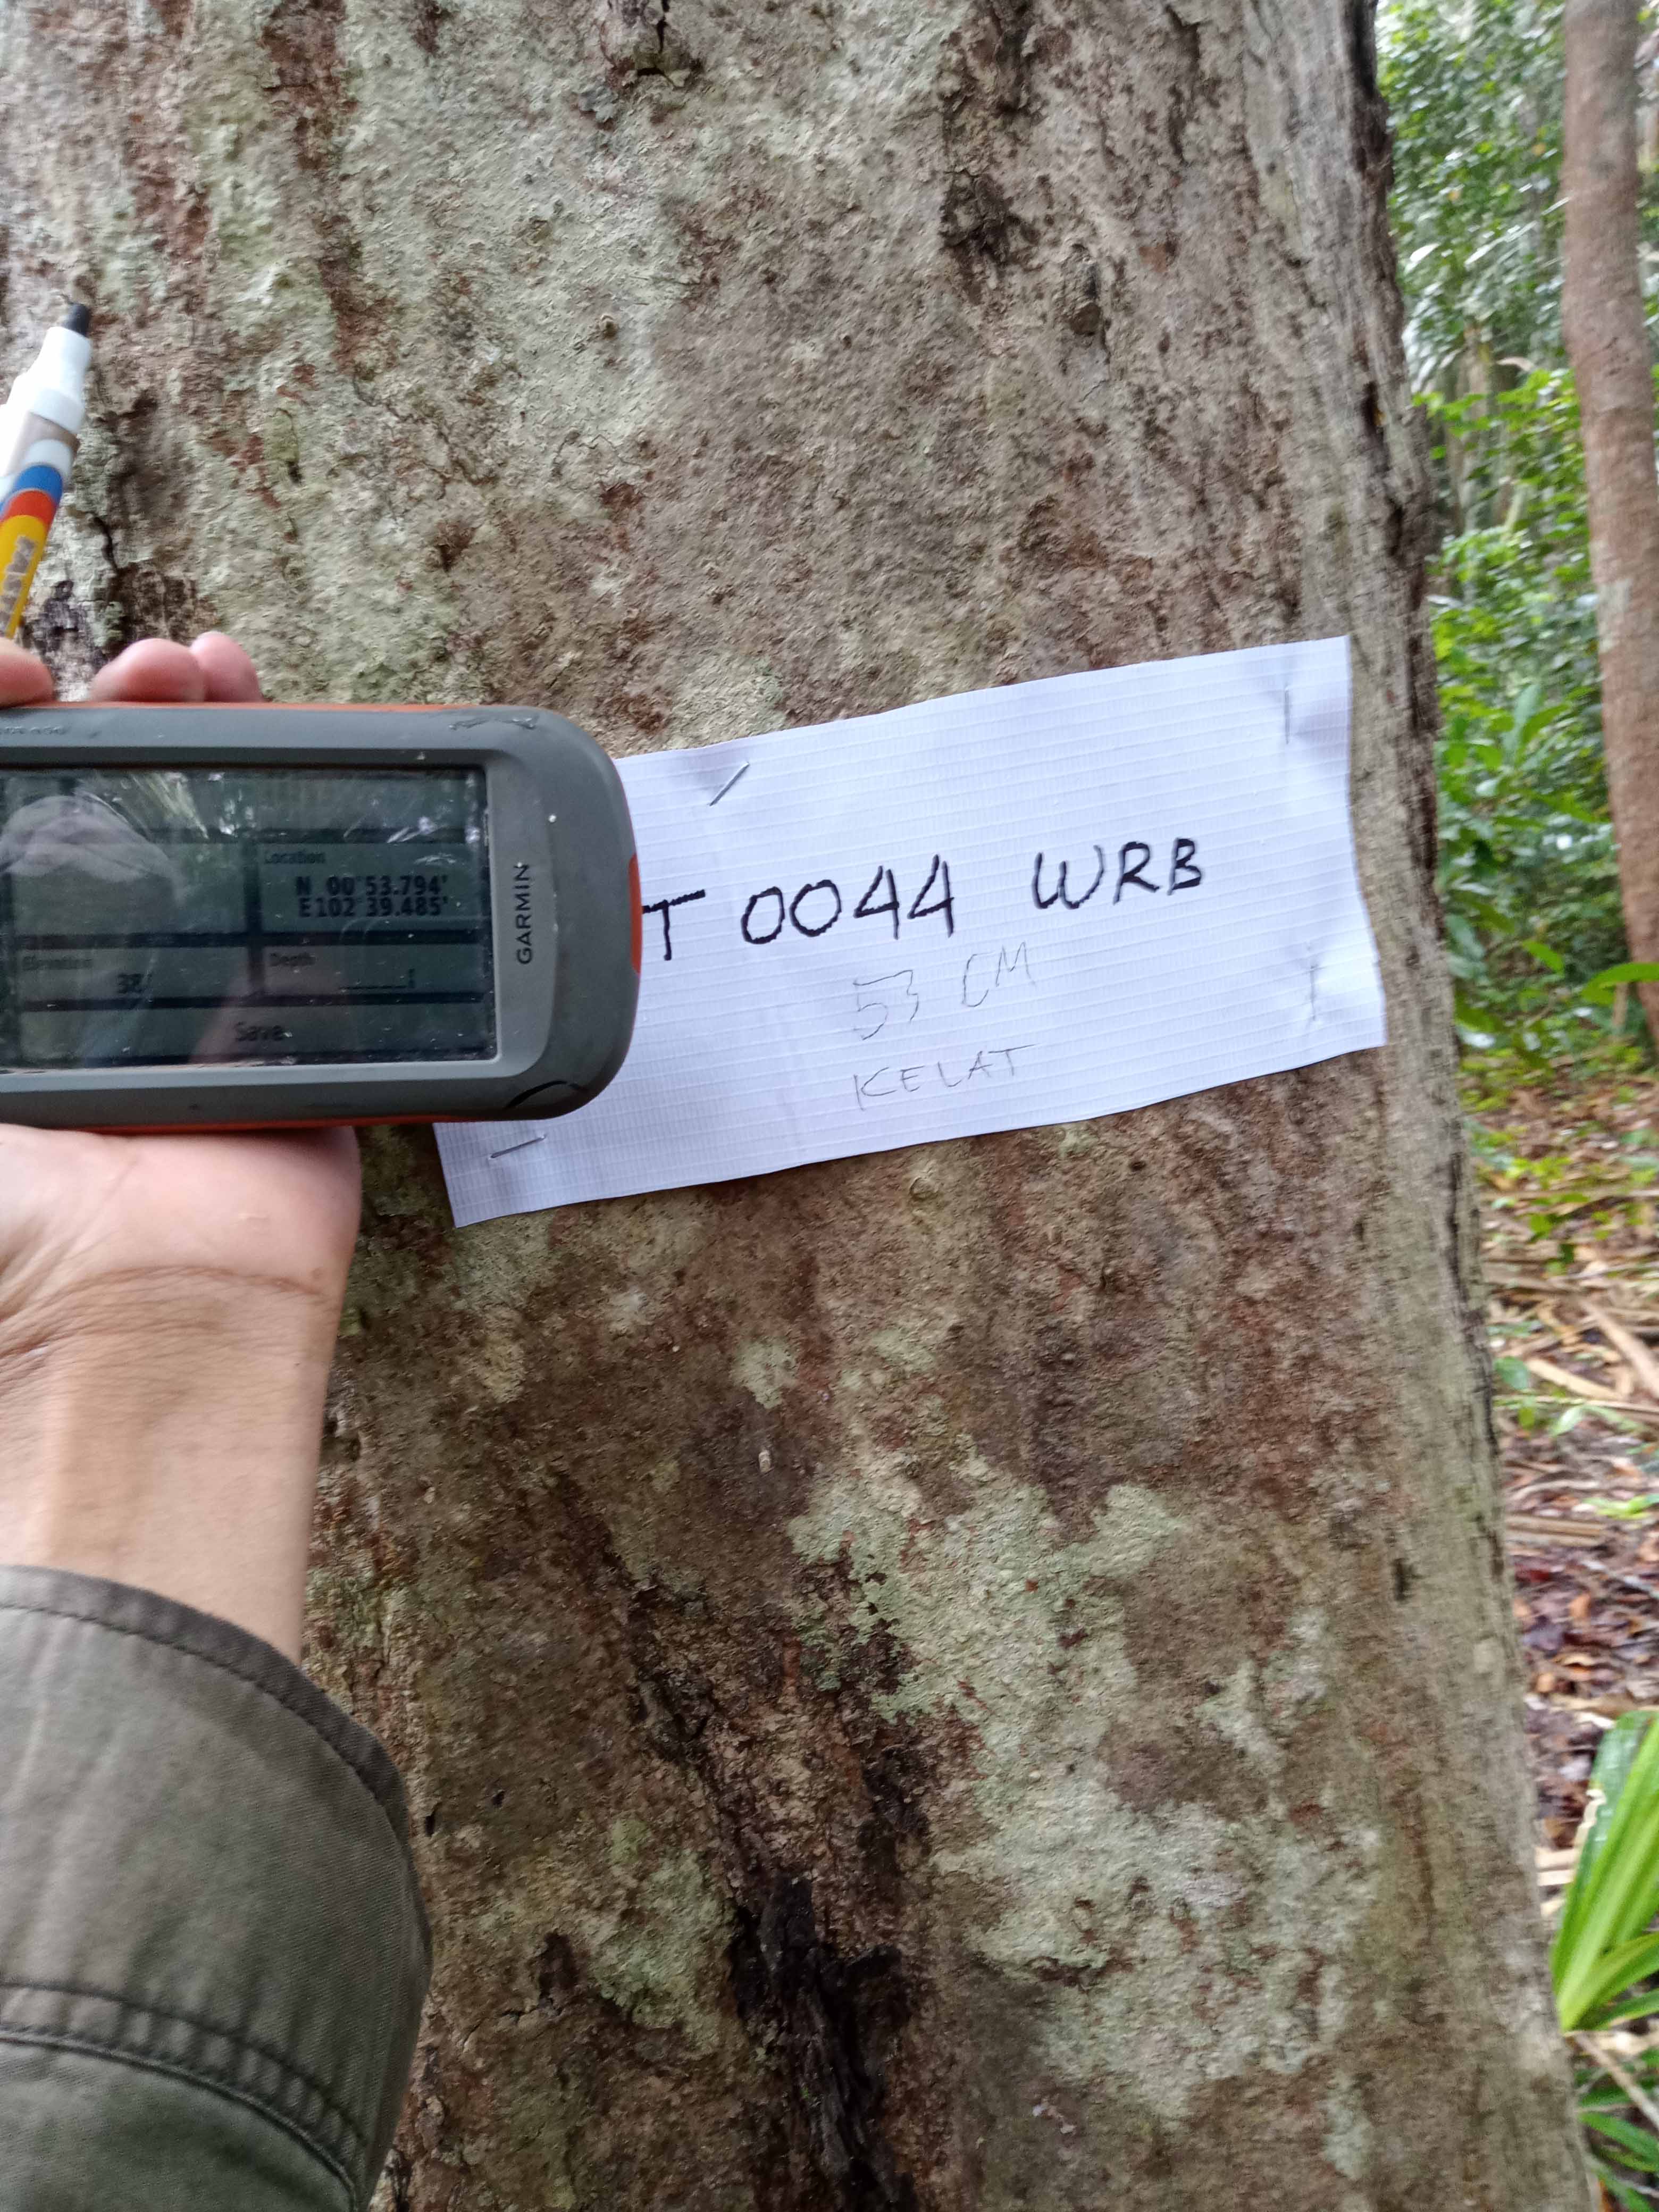 Location
N 00°53.794'
E102°39.485'
Elevation
Depth
Save
GARMIN
T 0044 WRB
53 CM
KELAT